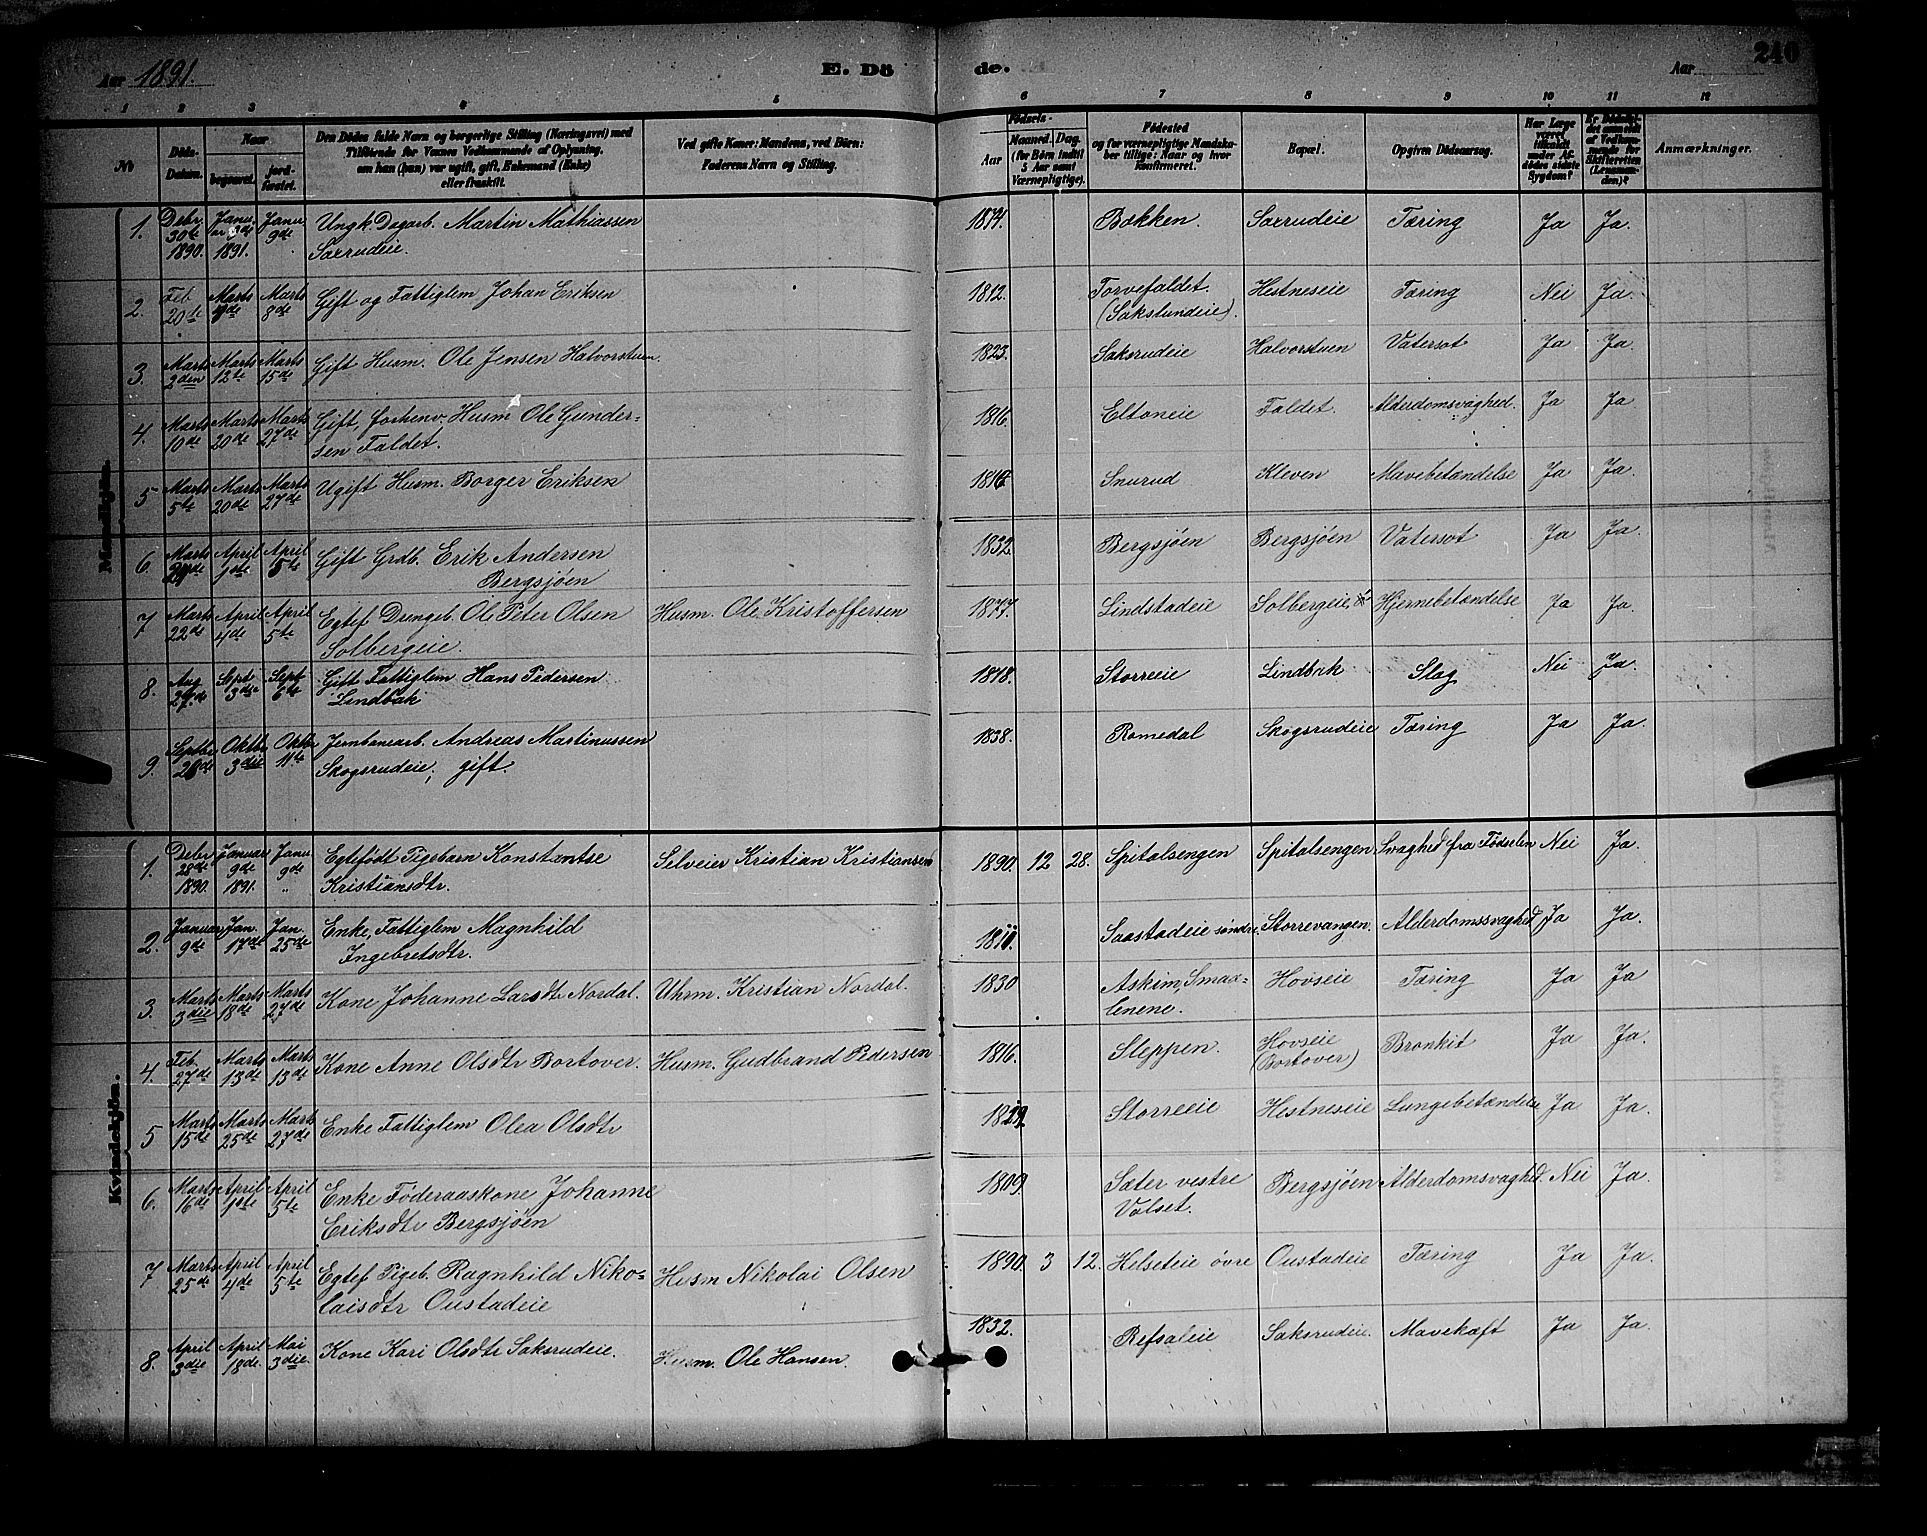 Aar 1891. E. Dö de. Aar 240
1 2 3 4 5 6 7 8 9 10 11 12
No Döds-Datum. Naar begravet. jord-fæstet. Den Dödes fulde Navn og borgerlige Stilling (Næringsvei) med Tilföiende for Voxnes Vedkommende af Oplysning, om han (hun) var ugift, gift, Enkemand (Enke) eller fraskilt. Ved gifte Koner: Mandens, ved Börn: Faderens Navn og Stilling. Födsels- Aar Maaned. Dag. (for Börn indtil 5 Aar samt Værnepligtige). Födested og for værnepligtige Mandskaber tillige: Naar og hvor konfirmeret. Bopæl. Opgiven Dödsaarsag. Har Læge været tilkaldt under Afdödes sidste Sygdom? Er Dödsfaldet anmeldt af Vedkommende for Skifteretten (Lensmanden)? Anmærkninger.
Mandkjön.
1. Debr 30te 1890. Janu. 3de 1891. Janu 9de Ungk. Dagarb. Martin Mathiassen Saxrudeie. 1874. Bækken. Saxrudeie Tæring Ja Ja.
2. Feb 20de Marts 4de Marts 8de Gift og Fattiglem Johan Eriksen 1812. Torvefaldet. (Sakslundeie). Hestneseie Tæring Nei Ja.
3. Marts 2den Marts 12te Marts 15de Gift Husm. Ole Jensen Halvorstuen. 1823. Saksrudeie Halvorstuen Vatersot Ja Ja.
4. Marts 10de Marts 20de Marts 27de Gift, forhenv. Husm Ole Gundersen Faldet. 1816. Eltoneie Faldet. Alderdomsvaghed. Ja Ja
5 Marts 5te Marts 20de Marts 27de Ugift Husm. Borger Eriksen Snurud Kleven Mavebetændelse Ja Ja.
6. Marts April 1ste April 5te Gift Grdb. Erik Andersen Bergsjöen 1832. Bergsjöen Bergsjöen Vatersot Ja Ja.
7 Marts 22de April 4de April 5te Egtef Drengeb. Ole Peter Olsen Solbergeie. Husm. Ole Kristoffersen 1877. Lindstadeie Solbergeie Hjernebetændelse Ja Ja.
8. Aug 27de Sept 3die Sept 6te Gift Fattiglem Hans Pedersen Lindbæk 1818. Storreeie Lindbæk Slag Nei Ja.
9. Septbr 26de Oktbr 3die Oktbr 11te Jernbanearb. Andreas Martinussen Skogsrudeie; gift. 1838. Romedal Skogsrudeie Tæring Ja Ja.
Kvindekjön.
1. Debr 28de 1890. Januar 9de 1891. Janu 9de " Egtefödt Pigebarn Konstantse Kristiansdtr. Selveier Kristian Kristiansen 1890. 12 28. Spitalsengen Spitalsengen. Svaghed fra Födselen Nei Ja.
2. Januar 9de Jan. 17de Jan 25de Enke, Fattiglem Magnhild Ingebretsdtr. Saastadeie söndre. Storrevangen. Alderdomssvaghed Ja Ja.
3. Marts 3die Marts 18de Marts 27de Kone Johanne Larsdtr Nordal. Uhrm. Kristian Nordal. 1830 Askim, Smaalenene. Hovseie Tæring Ja Ja
4. Feb. 27de Marts 13de Marts 13de Kone Anne Olsdtr Bortover. Husm. Gudbrand Pedersen 1816. Steppen. Hovseie (Bortover) Bronkit Ja Ja.
5 Marts 15de Marts 25de Marts 27de Enke Fattiglem Olea Olsdtr Storreeie Hestneseie Lungebetændelse Ja Ja.
6. Marts 16de April 1ste April 5te Enke Föderaaskone Johanne Eriksdtr Bergsjöen 1809. Sæter vestre Valset. Bergsjöen Alderdomsvaghed. Nei Ja.
7 Marts 25de April 4de April 5te Egtef Pigeb. Ragnhild Nikolaisdtr Oustadeie Husm Nikolai Olsen 1890. 3 12. Helseteie övre Oustadeie Tæring Ja Ja.
8. April 3die April 18de. Mai 3die. Kone Kari Olsdtr Saksrudeie. Husm. Ole Hansen. 1832. Refsaleie Saksrudeie. Mavekræft Ja Ja.